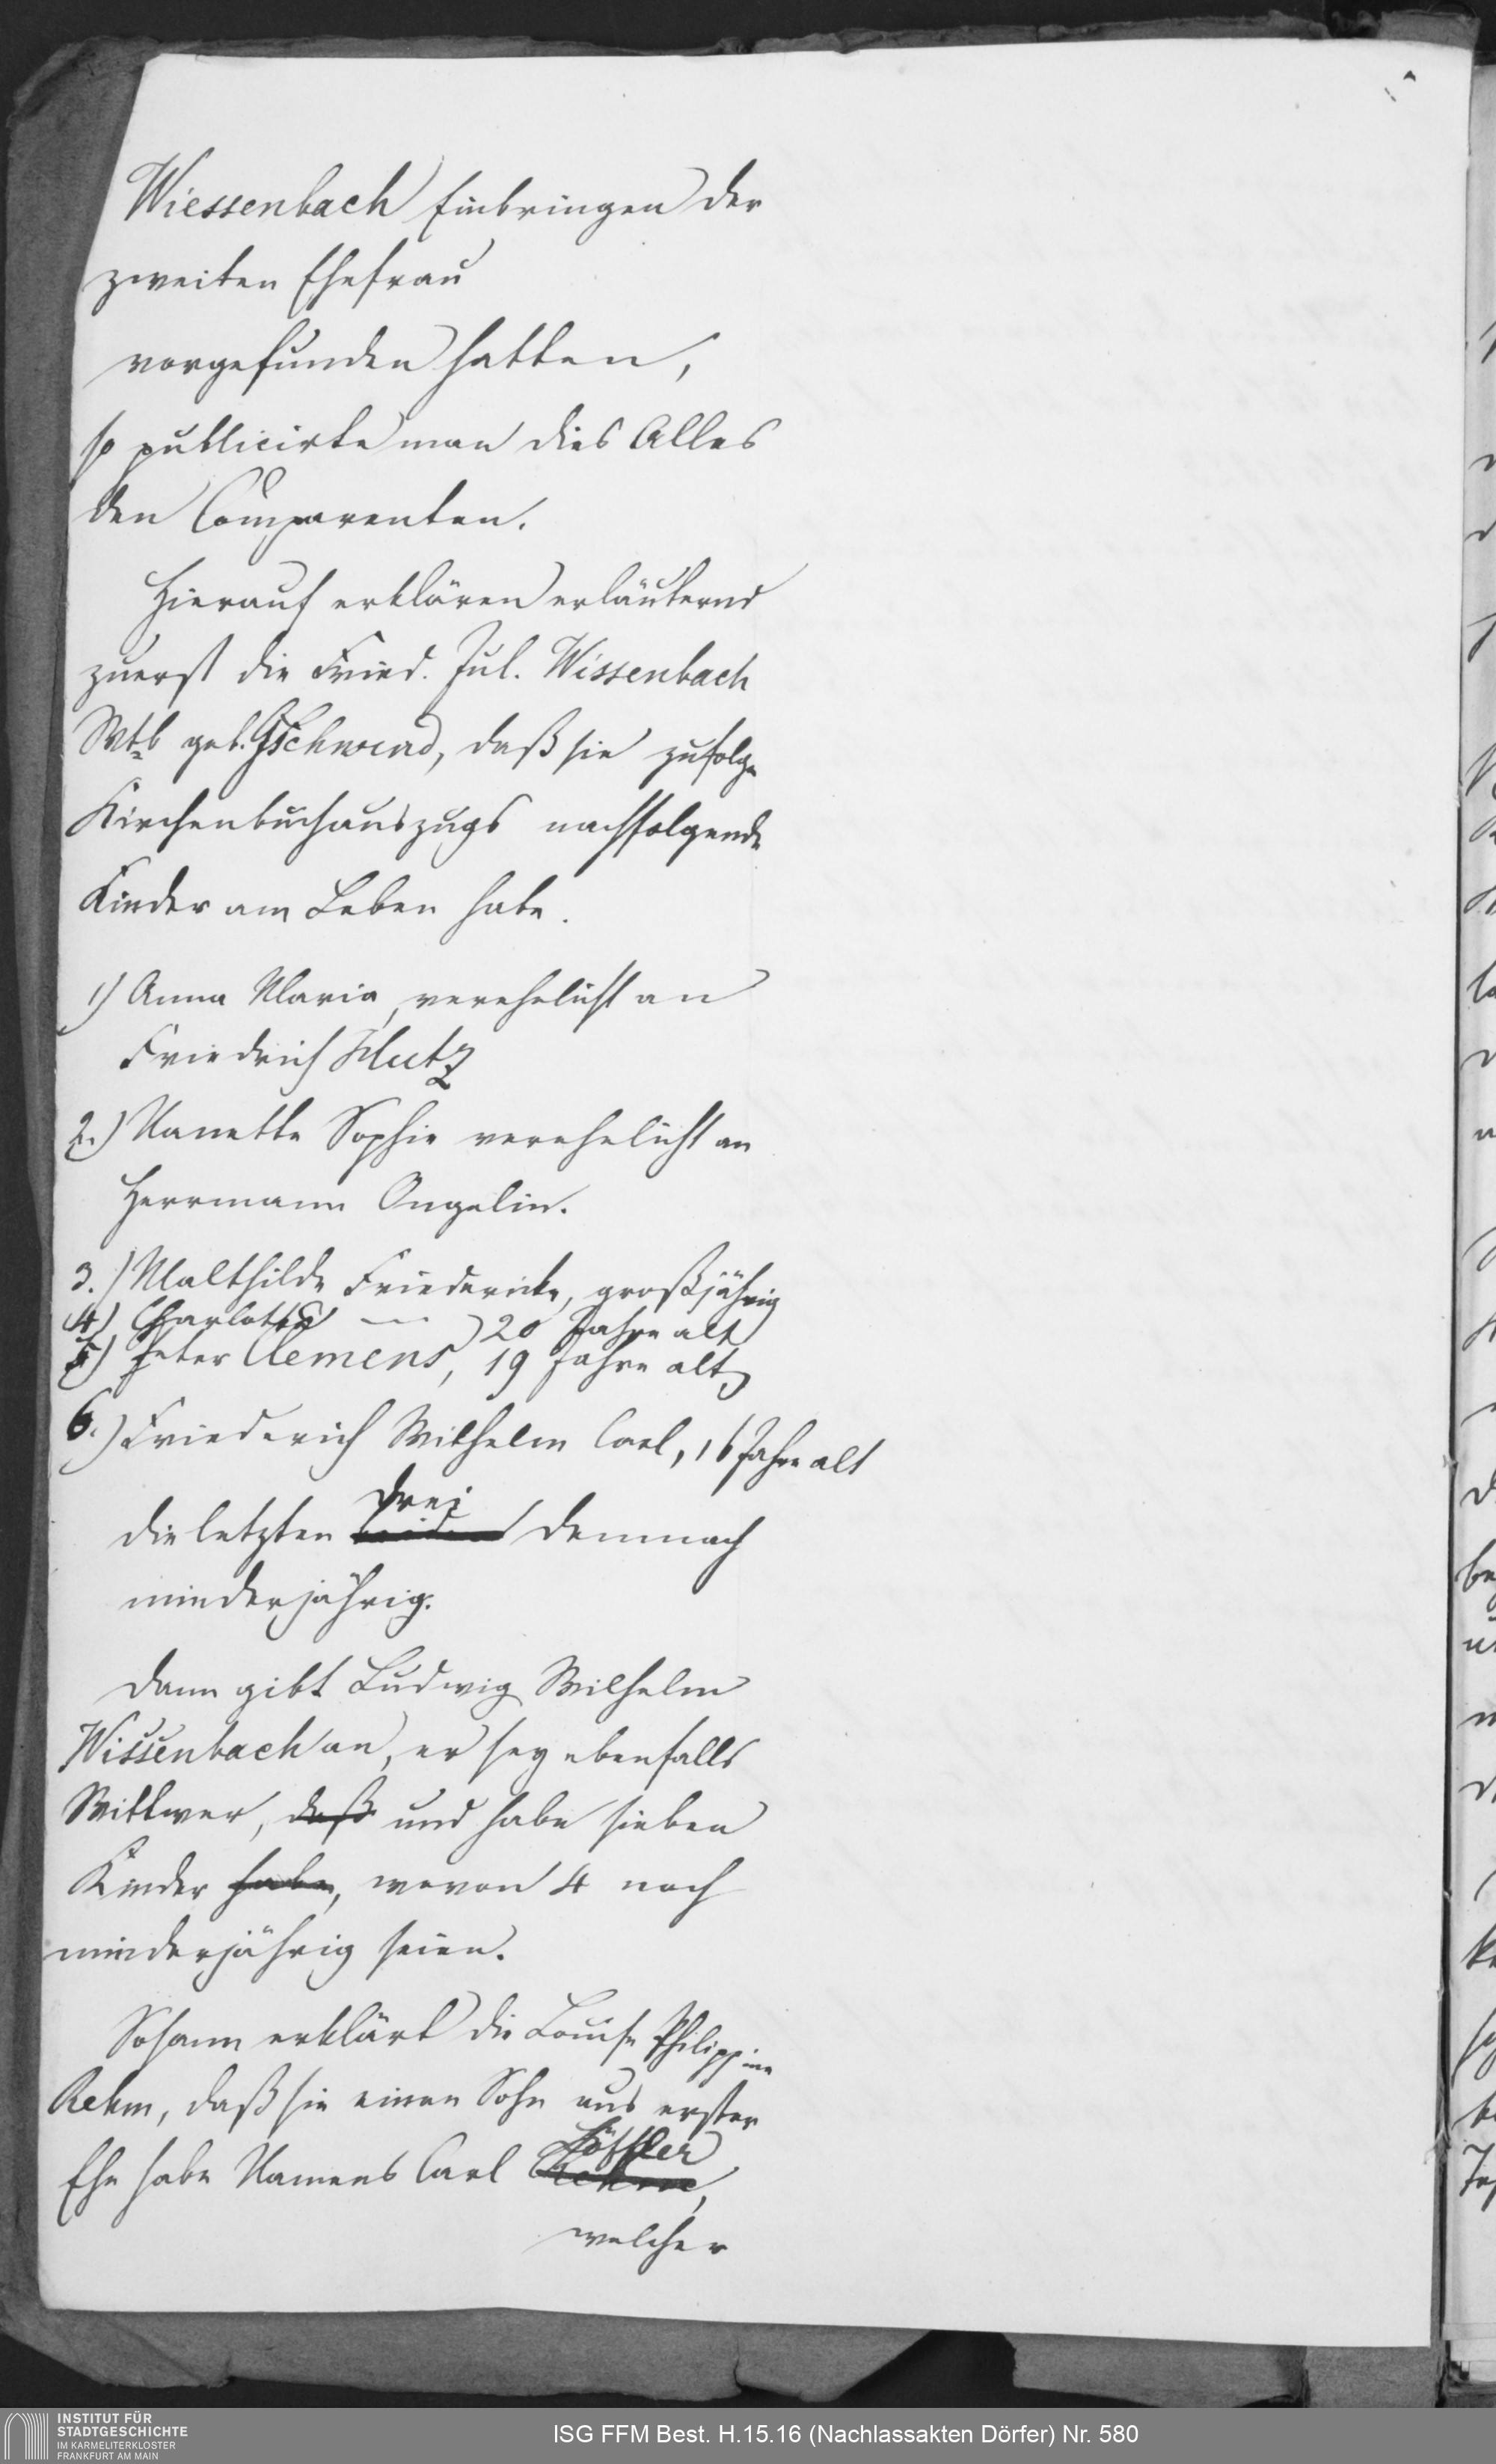 Wiessenbach Einbringen der
zweiten Ehefrau
vorgefunden hatten,
so publicirte man dies Alles
den Comparenten.
Hierauf erklären erläuternd
zuerst die Fried. Jul. Wissenbach
Wtb geb. Gschwend, daß sie zufolge
Kirchenbuchauszugs nachfolgende
Kinder am Leben habe.
1) Anna Maria, verehelicht an
Friedrich Mutz
2.) Nanette Sophie verehelicht an
Herrmann Ongelin.
3.) Malthilde Friedericke, großjährig
4) Charlotte — 20 Jahre alt
5) Peter Clemens, 19 Jahre alt,
6.) Friederich Wilhelm Carl, 16 Jahre alt
drei
die letzten beiden demnach
minderjährig.
Dann gibt Ludwig Wilhelm
Wissenbach an, er sey ebenfalls
Wittwer, daß und habe sieben
Kinder habe, wovon 4 noch
minderjährig seien.
Sodann erklärt die Louise Philippine
Rehm, daß sie einen Sohn aus erster
Löffler
Ehe habe Namens Carl Rehm,
welcher
INSTITUT FÜR
STADTGESCHICHTE
IM KARMELITERKLOSTER
FRANKFURT AM MAIN
ISG FFM Best. H.15.16 (Nachlassakten Dörfer) Nr. 580